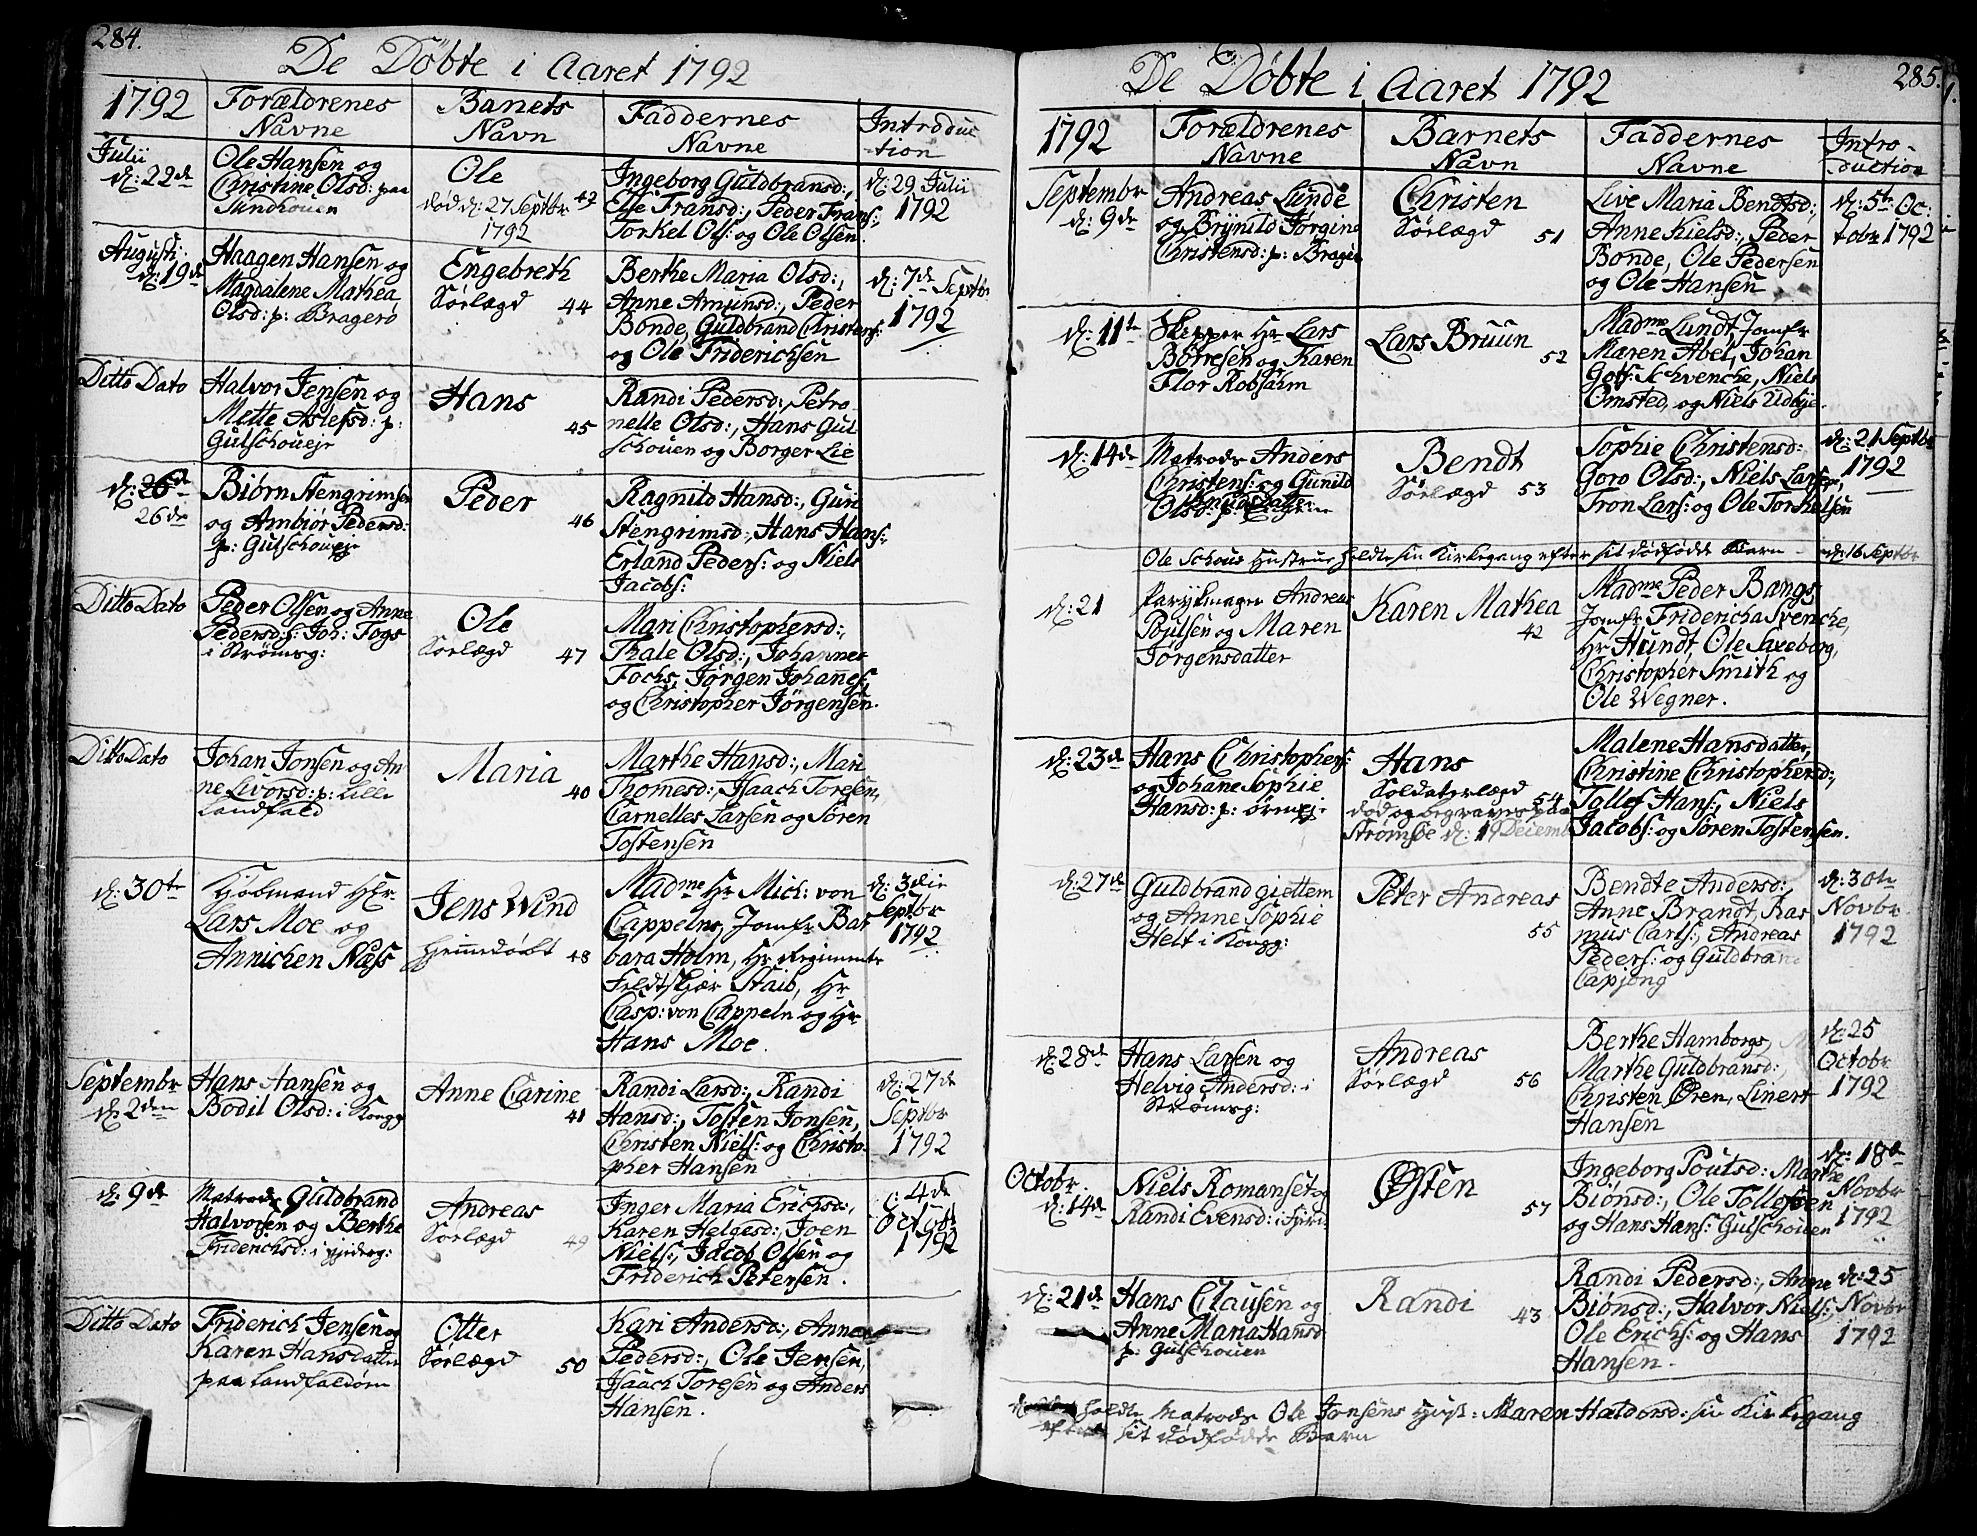 284.
De Döbte i Aaret 1792
1792
Forældrenes
Navne
Banets
Navn
Faddernes
Navne
Introduc
tion
Julii
d: 22de
Ole Hansen og
Christine Olsd: paa
Sundhouen
Ole
död d: 27 Septbr 43
1792
Ingeborg Guldbransd:,
Else Fransd:, Peder Frans:
Torkel Ols: og Ole Olsen
d: 29 Julii
1792
Augusti
d: 19de
Haagen Hansen og
Magdalene Mathea
Olsd: p: Bragerö
Engebreth
Sörlægd 44
Berthe Maria Olsd:,
Anne Amunsd:, Peder
Bonde, Guldbrand Christens:
og Ole Friderichsen
d: 7de Septbr
1792
Ditto Dato
Halvor Jensen og
Mette Aslefsd: p:
Gulschoueje
Hans
45
Randi Pedersd:, Petro-
nelle Olsd:, Hans Gul
schouen og Borger Lie
d: 26de
26de
Biörn Stengrimsen
og Ambiör Pedersd:
p: Gulschoueje
Peder
46
Ragnild Hansd:, Guri
Stengrimsd:, Hans Hans:
Erland Peders: og Niels
Jacobs:
Ditto Dato
Peder Olsen og Anne
Pedersd: f: Joh: Fogs
i Strömsg:
Ole
Sörlægd 47
Mari Christophersd:,
Thale Olsd:, Johannes
Fochs, Jörgen Johañes:
og Christopher Jörgensen.
Ditto Dato
Johan Jonsen og An
ne Livorsd: p: Lille
Landfald
Maria
40
Marthe Hansd:, Mari
Thomesd:, Isaach Toresen,
Carnelles Larsen og Sören
Tostensen
d: 30te
Kjöbmand Hr
Lars Moe og
Annichen Næss
Jens Wind
hjemmedöbt 48
Madme Hr Mich: von
Cappelns, Jomfr Bar
bara Holm, Hr Regiments
Feldtskjær Staib, Hr
Casp: von Cappeln og Hr
Hans Moe.
d: 3die
Septbr
1792
Septembr
d: 2den
Hans Hansen og
Bodil Olsd: i Kongg
Anne Carine
41
Randi Larsd:, Randi
Hansd:, Tosten Jonsen,
Christen Niels: og Christo-
pher Hansen
d: 27de
Septbr
1792
d: 9de
Matrods Guldbrand
Halvorsen og Berthe
Friderichsd: i
Andreas
Sörlægd 49
Inger Maria Erichsd:,
Karen Helgesd:, Joen
Niels:, Jacob Olsen og
Friderich Petersen.
d: 4de
Octobr
1792
Ditto Dato
Friderich Jensen og
Karen Hansdatter
paa Landfaldörn
Otter
Sörlægd 50
Kari Andersd:, Anne
Pedersd:, Ole Jensen,
Isaach Toresen og Anders
Hansen.
285.
De Döbte i Aaret 1792
1792
Forældrenes
Navne
Barnets
Navn
Faddernes
Navne
Intro-
duction
Septembr
d: 9de
Andreas Lunde
og Brynild Jörgine
Christensd: p: Bragerö
Christen
Sörlægd 51
Live Maria Bendtsd:,
Anne Kielsd:, Peder
Bonde, Ole Pedersen
og Ole Hansen
d: 5te Oc:
tobr 1792
d: 11te
Skipper Hr Lars
Börresen og Karen
Flor Robsahm
Lars Bruun
52
Madme Lundt, Jomfr
Maren Abel, Johan
Gotf: Schvencke, Niels
Omsted, og Niels Udbye.
d: 14de
Matrods Anders
Christens: og Gunild
Olsd: p:
Bendt
Sörlægd 53
Sophie Christensd:
Goro Olsd:, Niels Larsen,
Tron Lars: og Ole Torkelsen
d: 21 Septbr
1792
Ole Schous Hustrue holdte sin Kirkegang efter sit dödfödde Barn - d: 16 Septbr
d: 21
Parykmager Andreas
Poulsen og Maren
Jörgensdatter
Karen Mathea
42
Madme Peder Bangs,
Jomfr Fridericha Svencke,
Hr Hundt, Ole Saxeborg,
Christopher Smith og
Ole Wegner.
d: 23de
Hans Christophers:
og Johanne Sophie
Hansd: p: örneje
Hans
Soldaterlægd 54
död og begraves paa
Strömsöe d: 19 Decemb
Malene Hansdatter,
Christine Christophersd:,
Tollef Hans:, Niels
Jacobs: og Sören Tostensen.
d: 27de
Guldbrand Giettem
og Anne Sophie
Helt i Kongg:
Peter Andreas
55
Bendte Andersd:,
Anne Brandt, Ras
mus Carls:, Andreas
Peders: og Guldbrand
Capjong
d: 30te
Novbr
1792
d: 28de
Hans Larsen og
Helvig Andersd: i
Strömsg:
Andreas
Sörlægd 56
Berthe Hamborgs,
Marthe Guldbransd:,
Christen Ören, Linert
Hansen
d: 25
Octobr
1792
Octobr
d: 14de
Niels Romanset og
Randi Evensd:
Østen
57
Ingeborg Poulsd: Marthe
Biönsd:, Ole Tollefsen
og Hans Hans: Gulschouen
d: 18de
Novbr
1792
d: 21de
Hans Clausen og
Anne Maria Hansd:
p: Gulschouen
Randi
43
Randi Pedersd:, Anne
Biönsd:, Halvor Niels:,
Ole Erichs: og Hans
Hansen.
d: 25
Novbr
1792
holdte Matrods Ole Jonsens Hust: Maren Haldorsd: sin Kirkegang
efter sit dödfödde Barn